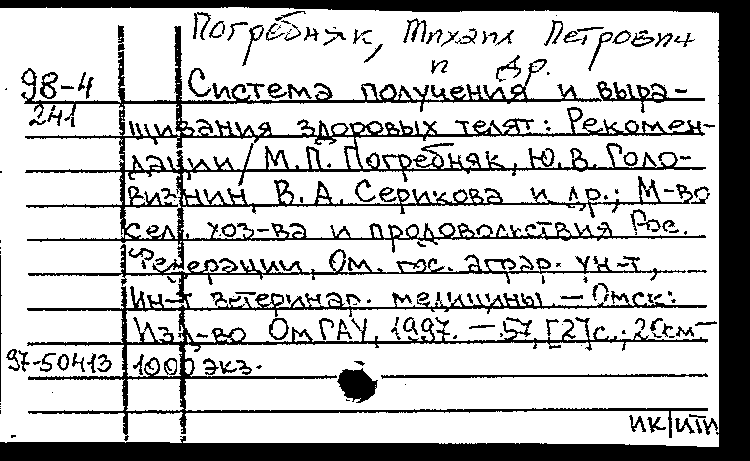 Погребняк, Михаил Петрович
и др.
98-4 Система получения и выра-
241 щивания здоровых телят: Рекомен-
дации / М.П. Погребняк, Ю.В. Голо-
визнин, В.А. Серикова и др.; М-во
сел. хоз-ва и продовольствия Рос.
Федерации, Ом. гос. аграр. ун-т,
Ин-т ветеринар. медицины. — Омск:
Изд-во ОмГАУ, 1997. — 57, [2] с.; 20см —
97-50413 1000 экз.
ик/ити